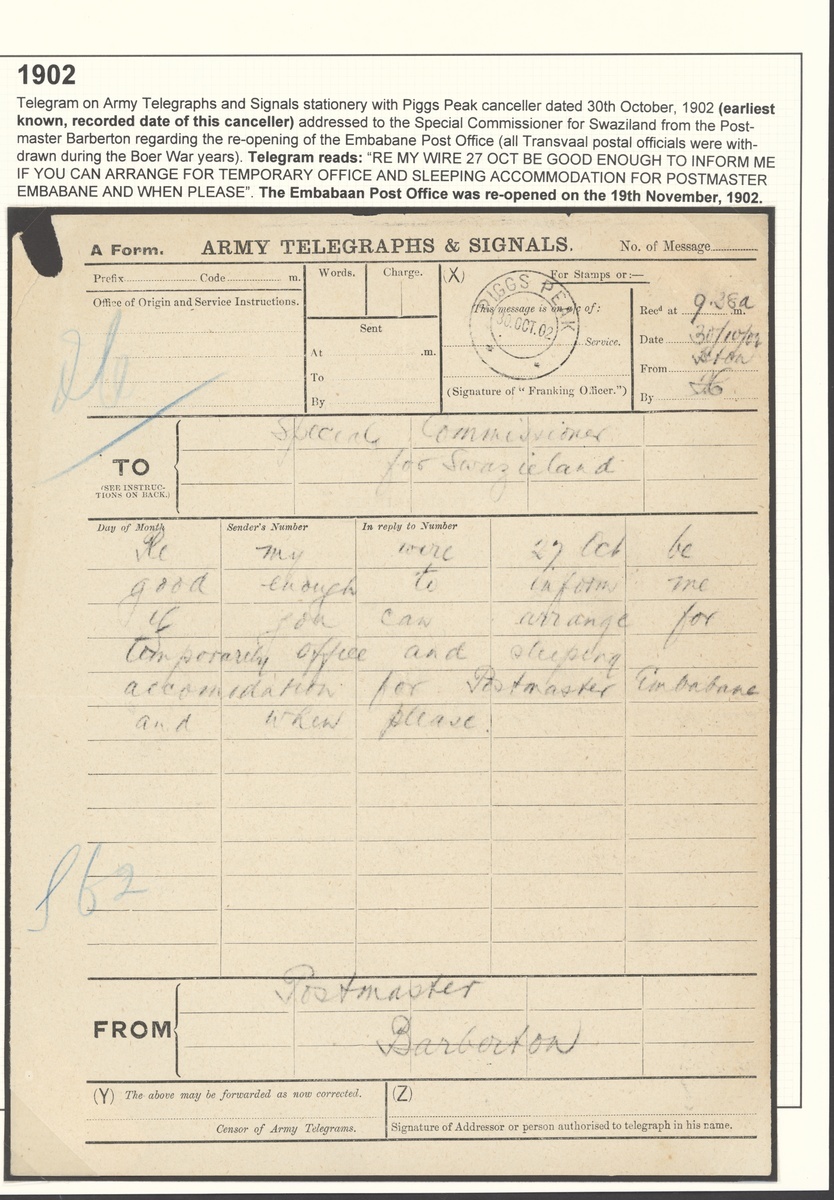 1902
Telegram on Army Telegraphs and Signals stationery with Piggs Peak canceller dated 30th October, 1902 (earliest
known, recorded date of this canceller) addressed to the Special Commissioner for Swaziland from the Post-
master Barberton regarding the re-opening of the Embabane Post Office (all Transvaal postal officials were with-
drawn during the Boer War years). Telegram reads: “RE MY WIRE 27 OCT BE GOOD ENOUGH TO INFORM ME
IF YOU CAN ARRANGE FOR TEMPORARY OFFICE AND SLEEPING ACCOMMODATION FOR POSTMASTER
EMBABANE AND WHEN PLEASE”. The Embabaan Post Office was re-opened on the 19th November, 1902.
A Form. ARMY TELEGRAPHS & SIGNALS. No. of Message
Prefix Code m.
Words. Charge.
(X) For Stamps or:—
Office of Origin and Service Instructions.
PIGGS PEAK
30.OCT.02
This message is on a/c of:
Service.
(Signature of “Franking Officer.”)
Sent
At .m.
To
By
Recd at 9.28a m.
Date 30/10/02
From
By
TO
(SEE INSTRUC-
TIONS ON BACK.)
Special Commissioner
for Swazieland
Day of Month Sender's Number In reply to Number
Re my wire 27 Oct be
good enough to inform me
if you can arrange for
temporarily office and sleeping
accomodation for Postmaster Embabane
and when please
862
FROM
Postmaster
Barberton
(Y) The above may be forwarded as now corrected.
Censor of Army Telegrams.
(Z)
Signature of Addressor or person authorised to telegraph in his name.